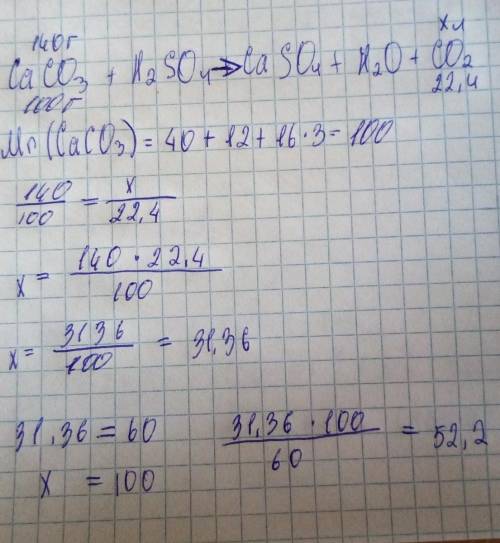 140г xл
CaCO₃ + H₂SO₄ → CaSO₄ + H₂O + CO₂
100г 22,4
Mr (CaCO₃) = 40 + 12 + 16 · 3 = 100
140/100 = x/22,4
x = 140 · 22,4 / 100
x = 3136/100 = 31,36
31,36 = 60 31,36 · 100 / 60 = 52,2
x = 100